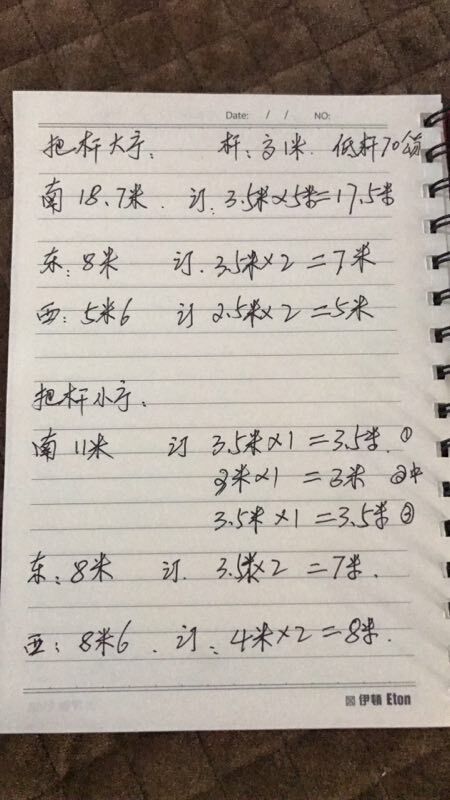 Date: / / NO:
把杆大厅: 杆:高1米. 低杆70公分
南 18.7米. 订:3.5米×5米=17.5米
东:8米 订.3.5米×2=7米
西:5米6 订 2.5米×2=5米
把杆小厅:
南 11米 订 3.5米×1=3.5米.①
3米×1=3米 ②中
3.5米×1=3.5米③
东:8米 订. 3.5米×2=7米.
西:8米6. 订:4米×2=8米.
伊顿 Eton